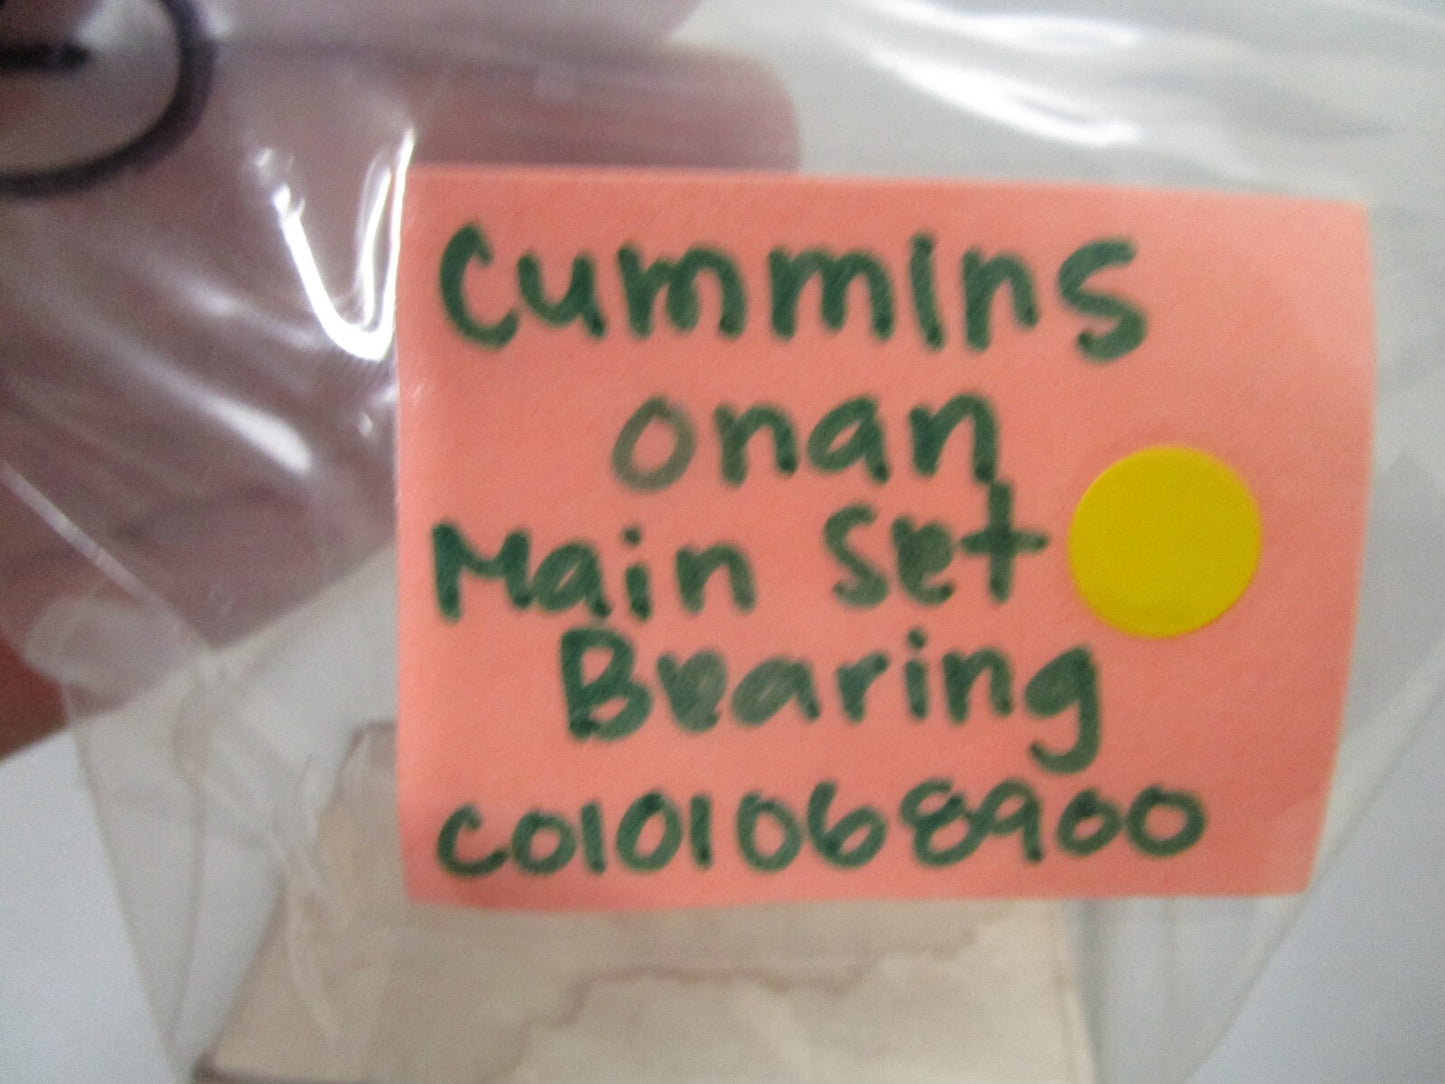 Cummins
onan
Main Set
Bearing
C0101068900